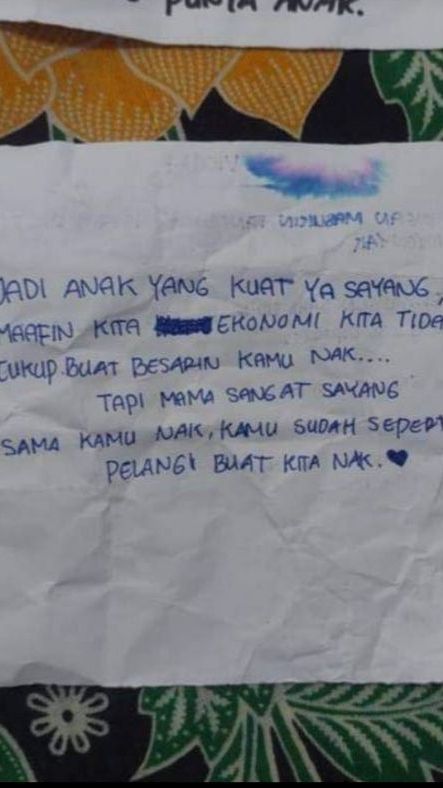 PUNYA ANAK.
JADI ANAK YANG KUAT YA SAYANG.
MAAFIN KITA EKONOMI KITA TIDA
CUKUP BUAT BESARIN KAMU NAK....
TAPI MAMA SANGAT SAYANG
SAMA KAMU NAK, KAMU SUDAH SEPERT
PELANGI BUAT KITA NAK. ♥